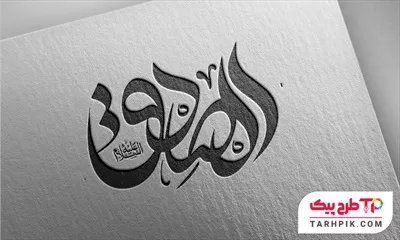 الصادق
علیه السلام
طرح پیک
TARHPIK.COM